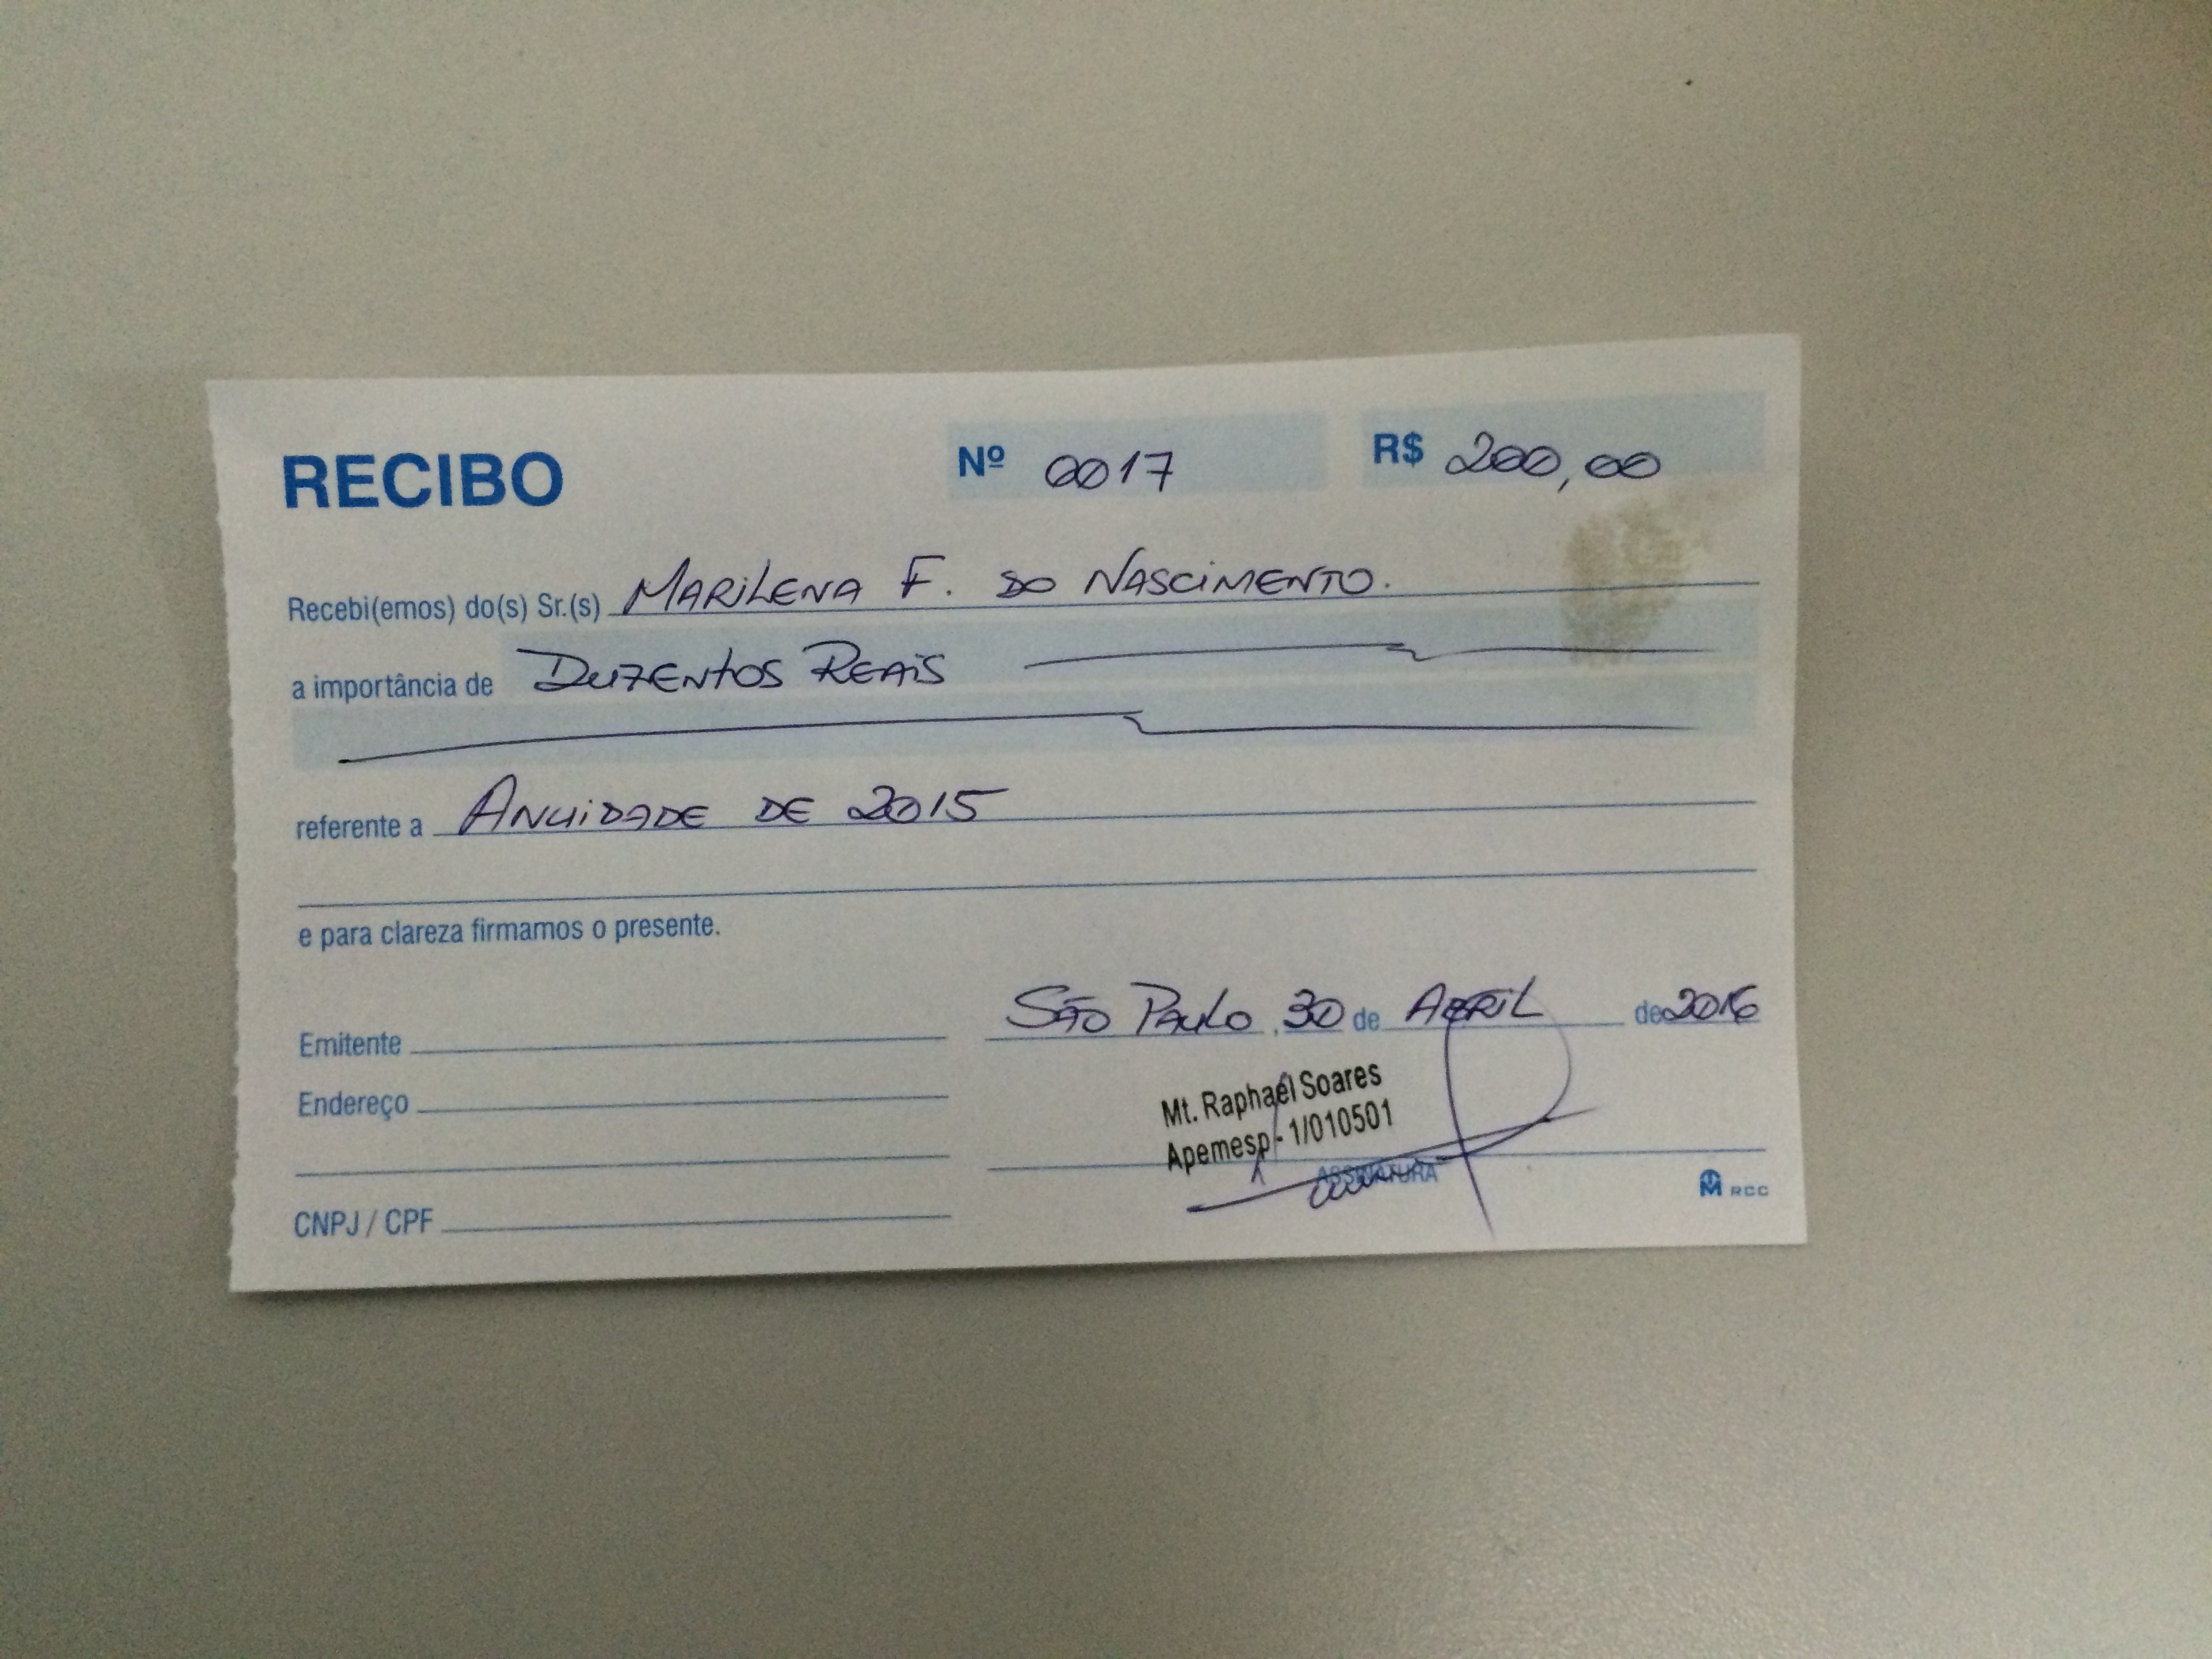 RECIBO Nº 0017 R$ 200,00
Recebi(emos) do(s) Sr.(s) MARILENA F. DO NASCIMENTO.
a importância de DUZENTOS REAIS
referente a ANUIDADE DE 2015
e para clareza firmamos o presente.
SÃO PAULO, 30 de ABRIL de 2016
Emitente
Mt. Raphael Soares
Endereço
Apemesp - 1/010501
ASSINATURA
RCC
CNPJ / CPF